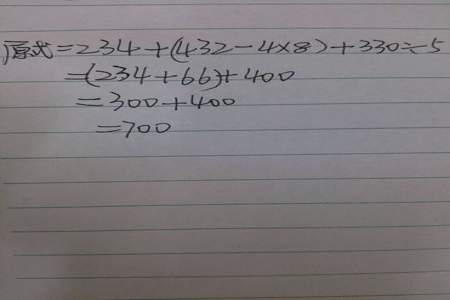 原式=234+(432-4×8)+330÷5
=(234+66)+400
=300+400
=700